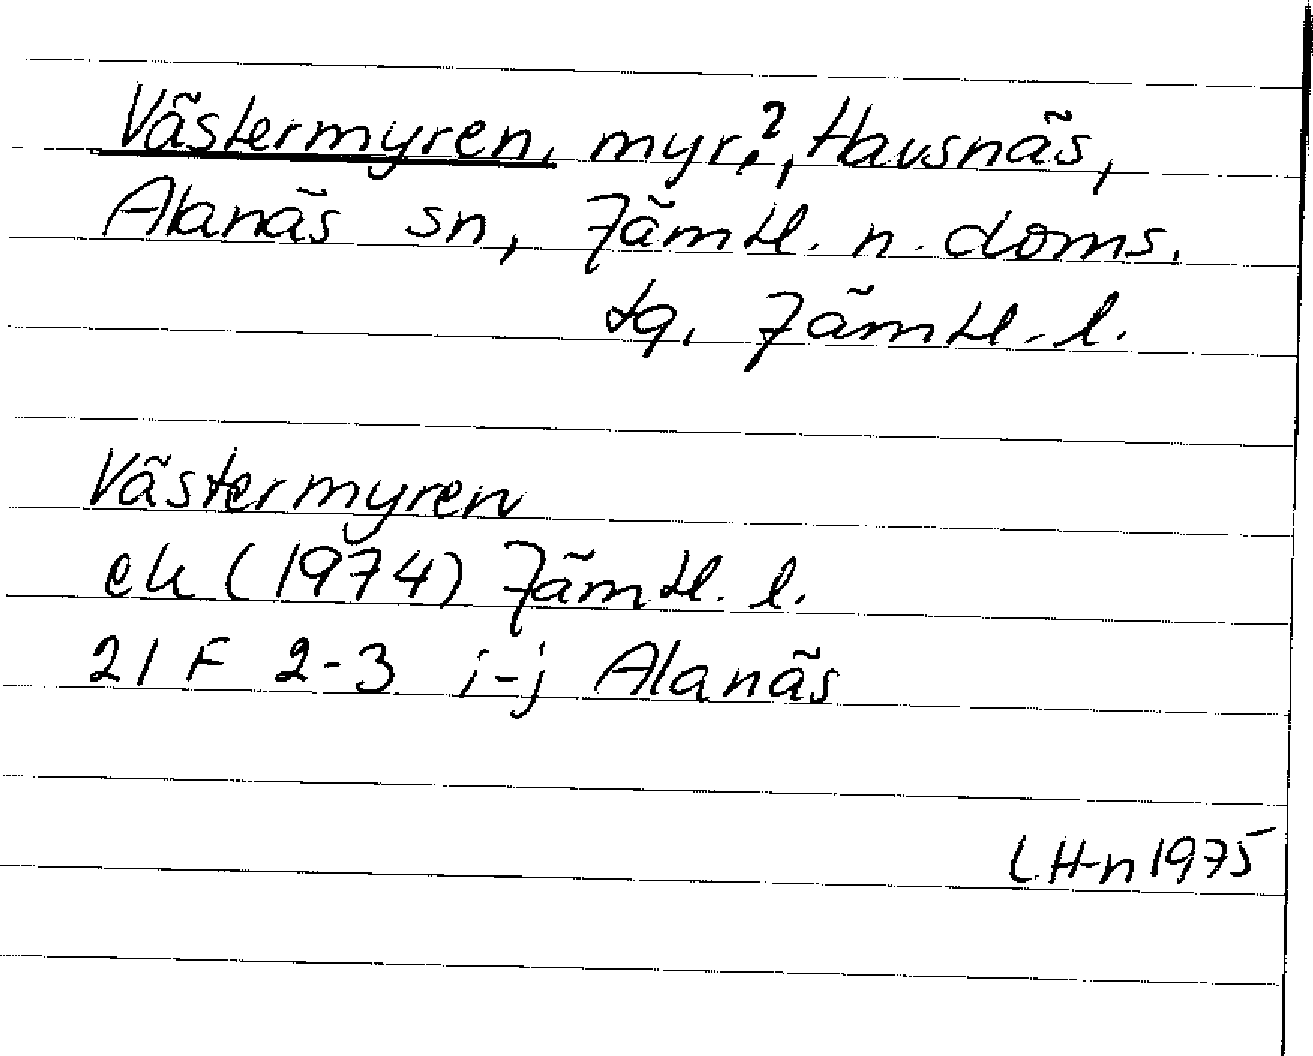 Västermyren, myr?, Havsnäs,
Alanäs sn, Jämtl. n. doms.
tg, Jämtl. l.
Västermyren
ek (1974) Jämtl. l.
21 F 2-3 i-j Alanäs
L H-n 1975